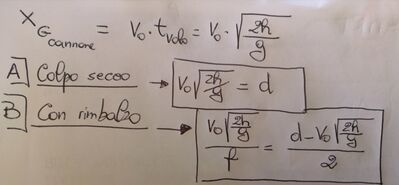 X_{G_{cannone}} = V₀ · t_{volo} = V₀ · √(2h/g)
A Colpo secco → V₀√(2h/g) = d
B Con rimbalzo → V₀√(2h/g) / f = (d - V₀√(2h/g)) / 2